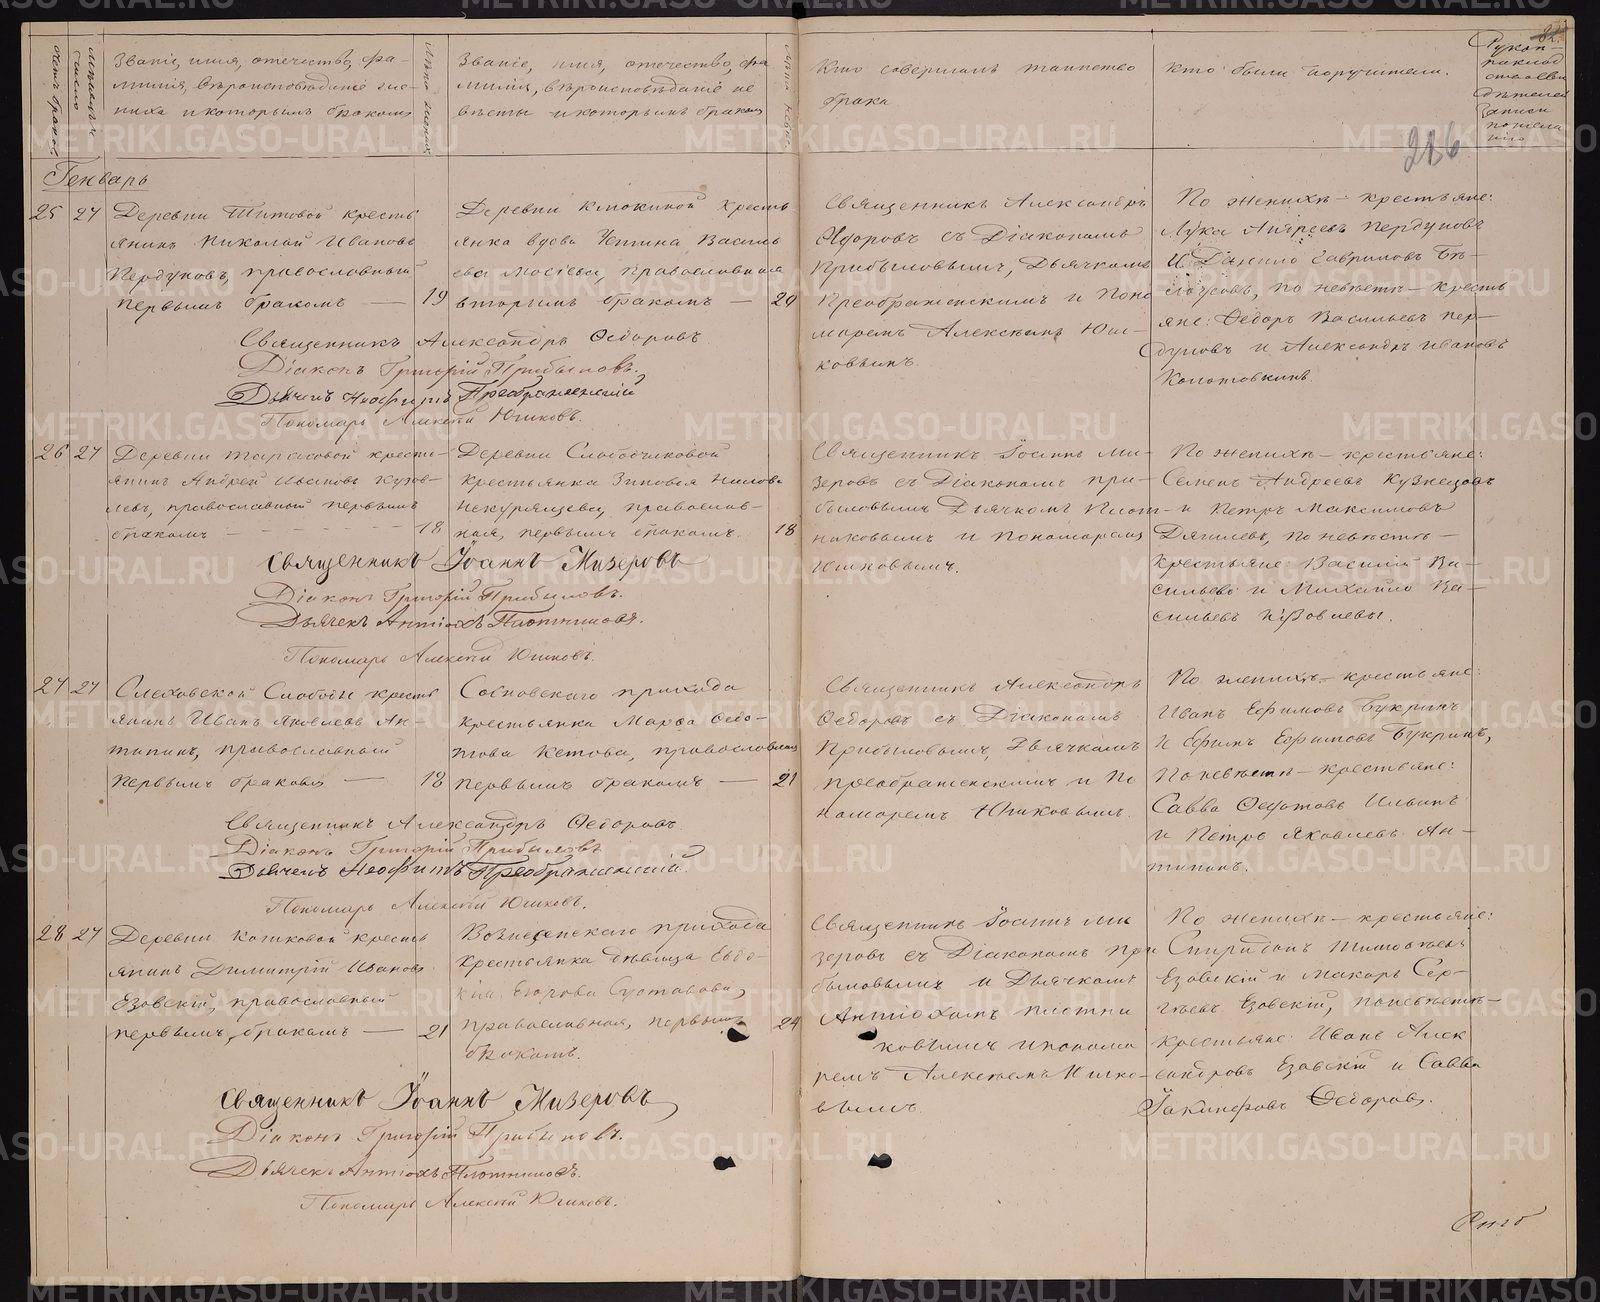 Званіе, имя, отечество, фа-
милія, вѣроисповѣданіе же-
ниха и которымъ бракомъ
Званіе, имя, отечество, фа
милія, вѣроисповѣданіе не
вѣсты и которымъ бракомъ
Кто совершалъ таинство
брака
Кто были поручители.
286
Генварь
25 27
Деревни Титовой кресть
янинъ Николай Ивановъ
Пердуновъ, православный
первымъ бракомъ — 19
Деревни Клюкиной кресть
янка вдова Устина Василь
ева Мосіева, православная
вторымъ бракомъ — 20
Священникъ Александръ
Ѳедоровъ съ Діакономъ
Прибыловымъ, Дьячкомъ
Преображенскимъ и Поно
маремъ Алексѣемъ Юш-
ковымъ.
По женихѣ — крестьяне:
Лука Андреевъ Пердуновъ
и Данило Гавриловъ Бѣ-
лоусовъ, по невѣстѣ — кресть
яне: Ѳедоръ Васильевъ Пер-
дуновъ и Александръ Ивановъ
Копотовкинъ.
Священникъ Александръ Ѳедоровъ.
Діаконъ Григорій Прибыловъ.
Дьячекъ Неофитъ Преображенскій
Пономарь Алексѣй Юшковъ.
26 27
Деревни Тарасовой кресть-
янинъ Андрей Ивановъ Кузов-
левъ, православный первымъ
бракомъ — 18
Деревни Слободчиковой
крестьянка Зиновья Нилова
Некурящева, православ-
ная, первымъ бракомъ. 18
Священникъ Іоаннъ Ми-
зеровъ съ Діакономъ При-
быловымъ Дьячкомъ Плот-
никовымъ и Пономаремъ
Юшковымъ.
По женихѣ — крестьяне:
Семенъ Андреевъ Кузнецовъ
и Петръ Максимовъ
Дягилевъ, по невѣстѣ —
крестьяне: Василій Ва-
сильевъ и Михайло Ва-
сильевъ Кузовлевы.
Священникъ Іоаннъ Мизеровъ
Діаконъ Григорій Прибыловъ.
Дьячекъ Антіохъ Плотниковъ.
Пономарь Алексѣй Юшковъ.
27 27
Слободы кресть
янинъ Иванъ Яковлевъ Ан-
типинъ, православный
первымъ бракомъ — 18
Сосновскаго прихода
крестьянка Марѳа Ѳедо-
това Кетова, православная
первымъ бракомъ — 21
Священникъ Александръ
Ѳедоровъ съ Діакономъ
Прибыловымъ, Дьячкомъ
Преображенскимъ и По
номаремъ Юшковымъ.
По женихѣ — крестьяне:
Иванъ Ефимовъ Букринъ
и Ефимъ Ефимовъ Букринъ,
по невѣстѣ — крестьяне:
Савва Ѳедотовъ Ильинъ
и Петръ Яковлевъ Ан-
типинъ.
Священникъ Александръ Ѳедоровъ
Діаконъ Григорій Прибыловъ
Дьячекъ Неофитъ Преображенскій.
Пономарь Алексѣй Юшковъ.
28 27
Деревни Кошковой кресть
янинъ Димитрій Ивановъ
Езовскій, православный
первымъ бракомъ — 21
Вознесенскаго прихода
крестьянка дѣвица Евдо-
кія Егорова Суставова,
православная, первымъ
бракомъ. 24
Священникъ Іоаннъ Ми
зеровъ съ Діакономъ При
быловымъ и Дьячкомъ
Антіохомъ Плотни
ковымъ и понома
ремъ Алексѣемъ Юшко-
вымъ.
По женихѣ — крестьяне:
Спиридонъ Тимоѳеевъ
Езовскій и Макаръ Сер-
гѣевъ Езовскій, по невѣстѣ —
крестьяне: Иванъ Алек
сандровъ Езовскій и Савва
Іакинфовъ Ѳедоровъ.
Священникъ Іоаннъ Мизеровъ
Діаконъ Григорій Прибыловъ.
Дьячекъ Антіохъ Плотниковъ.
Пономарь Алексѣй Юшковъ.
METRIKI.GASO-URAL.RU